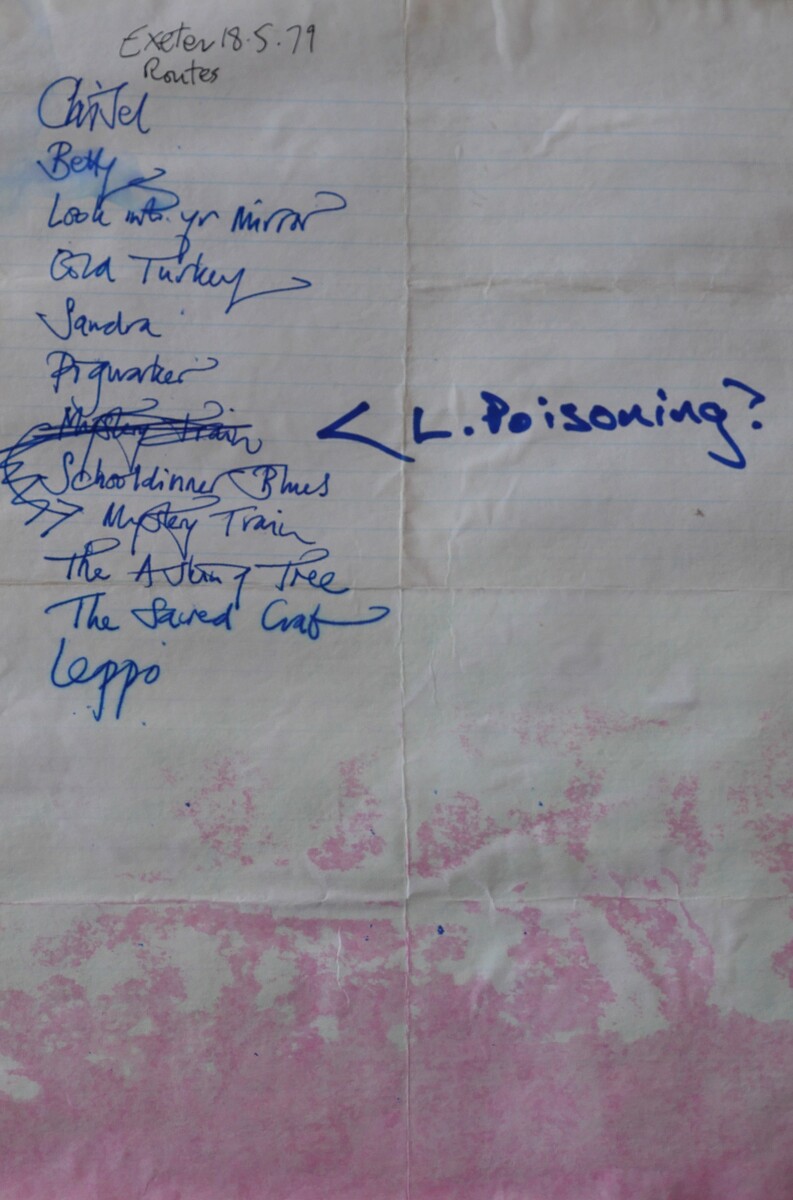 Exeter 18.5.79
Routes
Chisel
Betty
Look into yr Mirror
Cold Turkey
Sandra
Pigworker
Mystery Train
< L. Poisoning?
Schooldinner Blues
Mystery Train
The Asking Tree
The Sacred Craf
Leppo